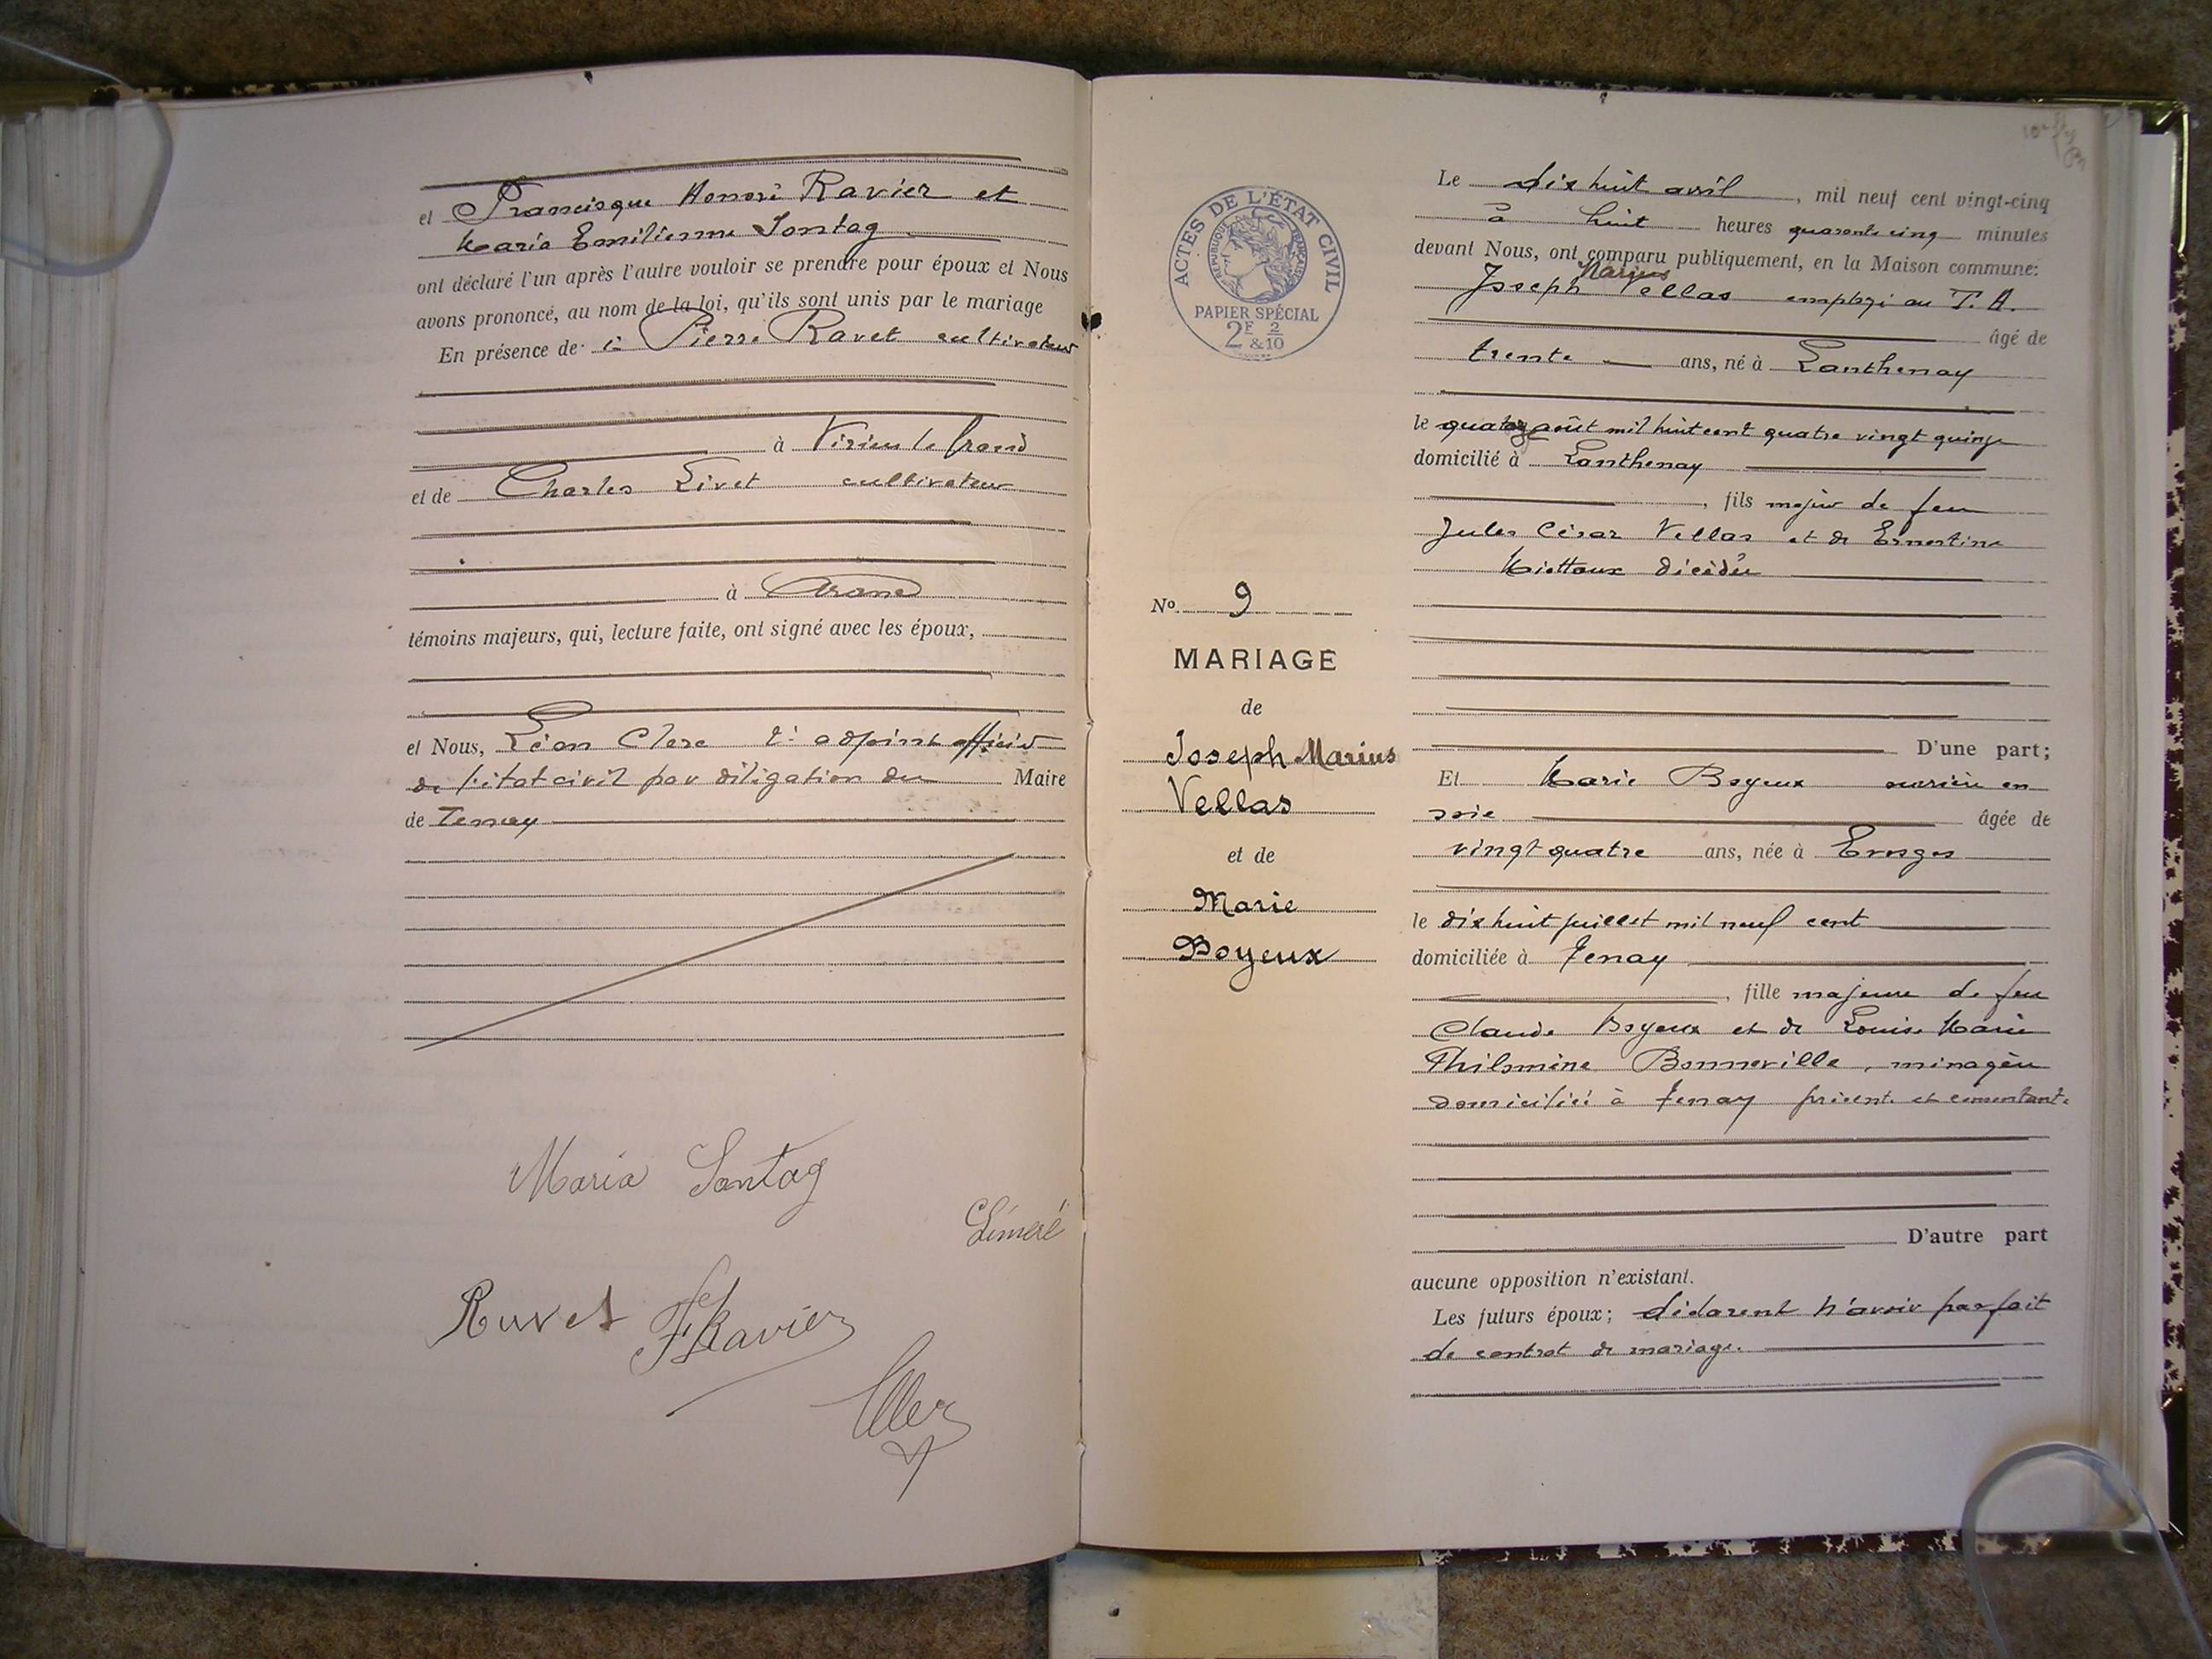 et Francisque Honoré Ravier et
Maria Emilienne Sontag
ont déclaré l'un après l'autre vouloir se prendre pour époux et Nous
avons prononcé, au nom de la loi, qu'ils sont unis par le mariage
En présence de Pierre Ravet cultivateur
à Virieu le Grand
et de Charles Livet cultivateur
à Arane
témoins majeurs, qui, lecture faite, ont signé avec les époux,
et Nous, Léon Clerc adjoint officier
de l'état civil par délégation du Maire
de Tenay
Maria Sontag
Ravet
Ravier
ACTES DE L'ÉTAT CIVIL
RÉPUBLIQUE FRANÇAISE
PAPIER SPÉCIAL
2F & 2/10
No 9
MARIAGE
de
Joseph Marius
Vellas
et de
Marie
Boyeux
Le dix huit avril, mil neuf cent vingt-cinq
à huit heures quarante cinq minutes
devant Nous, ont comparu publiquement, en la Maison commune:
Joseph Marius Vellas employé au T. A.
âgé de
trente ans, né à Lanthenay
le quatorze août mil huit cent quatre vingt quinze
domicilié à Lanthenay
, fils majeur de feu
Jules César Vellas et de Ernestine
décédée
D'une part;
Et Marie Boyeux ouvrière en
soie âgée de
vingt quatre ans, née à Evosges
le dix huit juillet mil neuf cent
domiciliée à Tenay
, fille majeure de feu
Claude Boyeux et de Louise Marie
Philomène Bonneville, ménagère
domiciliée à Tenay présente et consentante
D'autre part
aucune opposition n'existant.
Les futurs époux; déclarent n'avoir pas fait
de contrat de mariage.